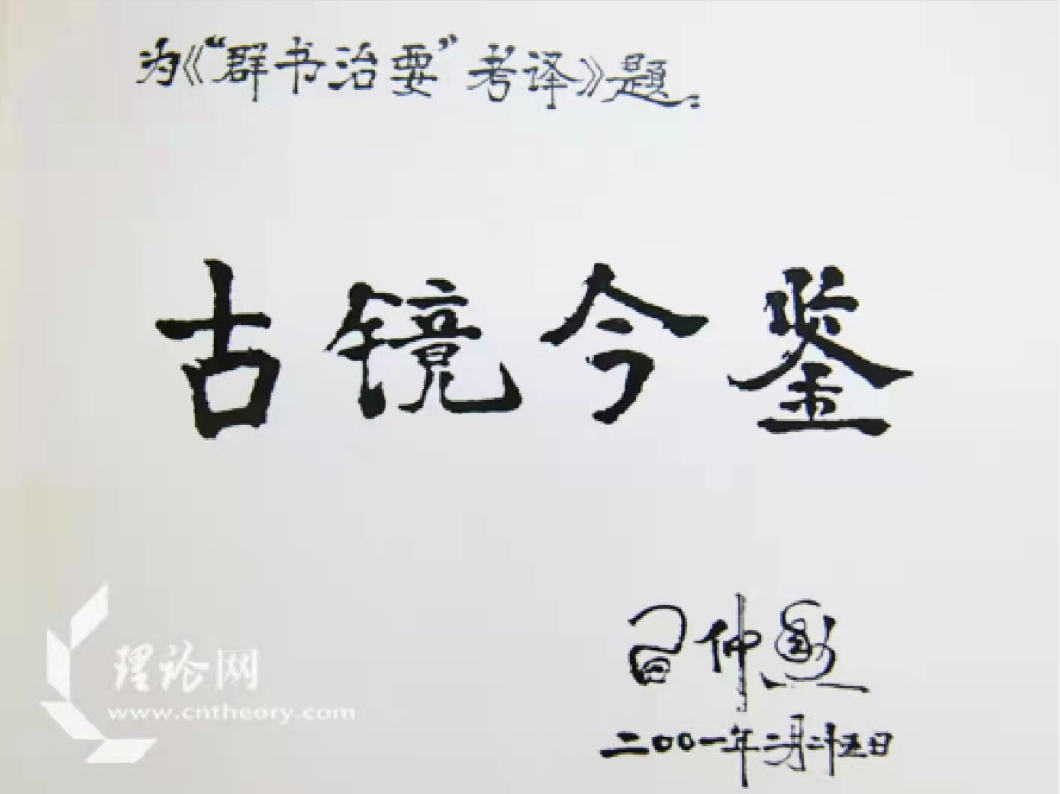 为《“群书治要”考译》题:
古镜今鉴
习仲勋
二〇〇一年二月二十五日
理论网
www.cntheory.com